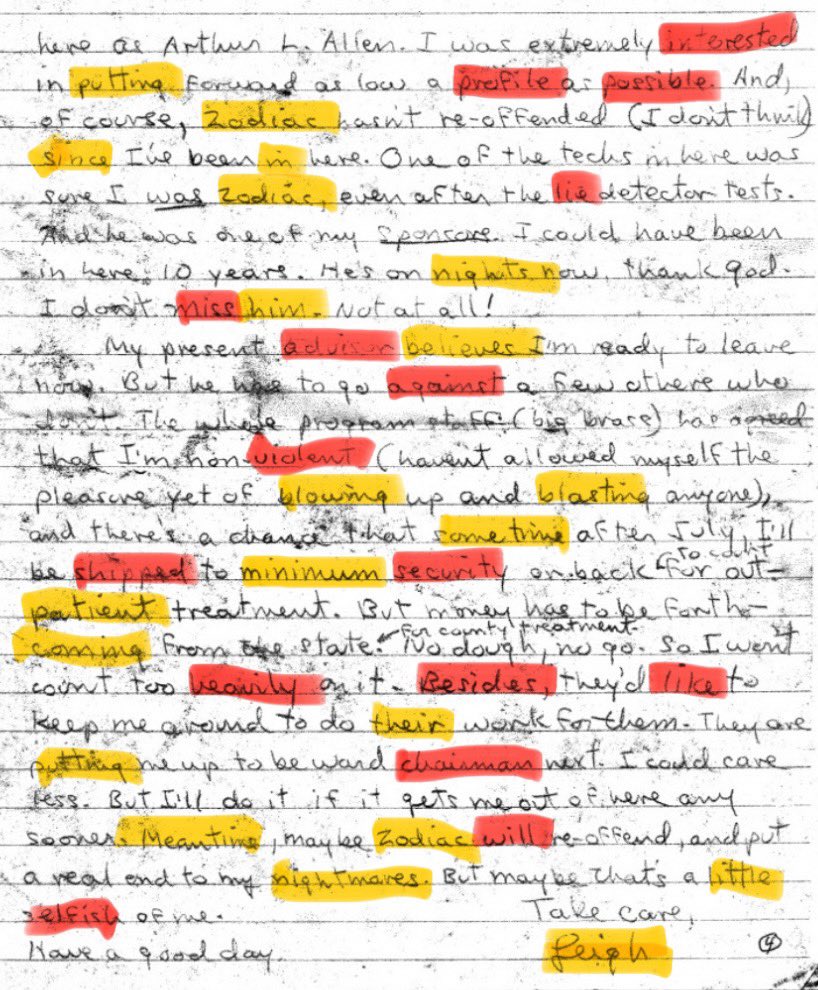 here as Arthur L. Allen. I was extremely interested
in putting forward as low a profile as possible. And,
of course, Zodiac hasn't re-offended (I don't think)
since I've been in here. One of the techs in here was
sure I was Zodiac, even after the lie detector tests.
And he was one of my sponsors. I could have been
in here 10 years. He's on nights now, thank god.
I don't miss him. Not at all!
My present advisor believes I'm ready to leave
now. But he has to go against a few others who
don't. The whole program staff (big brass) has agreed
that I'm non-violent (haven't allowed myself the
pleasure yet of blowing up and blasting anyone),
and there's a chance that sometime after July, I'll
be shipped to minimum security or back to court for out-
patient treatment. But money has to be forth-
coming from the state for county treatment. No dough, no go. So I won't
count too heavily on it. Besides, they'd like to
keep me around to do their work for them. They are
putting me up to be ward chairman next. I could care
less. But I'll do it if it gets me out of here any
sooner. Meantime, maybe Zodiac will re-offend, and put
a real end to my nightmares. But maybe that's a little
selfish of me. Take care,
Have a good day. Leigh 4